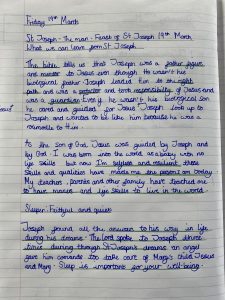 Friday 19th March
St Joseph - The man - Feast of St Joseph 19th March
What we can learn from St Joseph
The bible tells us that Joseph was a father figure
and mentor to Jesus even though He wasn't his
biological father. Joseph lead him to the right
path and was a protector and took responsibility of Jesus and
was a guardian. Even if he wasn't his biological son
he cared and guided for Jesus. Joseph look up to
Joseph and wanted to be like him because he was
a rolemodle to Him.
As the Son of God, Jesus was guided by Joseph and
by God. I was born into the world as a baby with no
life skills but now I'm selfless and resilient these
skills and qualities have made me the person am today
My teachers, parents and other family have teached me
to have manners and life skills to live in the world.
Sleeper - Faithful and quiet
Joseph found all the answers to his way in life
during his dreams - The Lord spoke to Joseph
times during through St Joseph's dreams an angel
gave him commands too take care of Mary's child Jesus
and Mary - Sleep is important for your well-being.